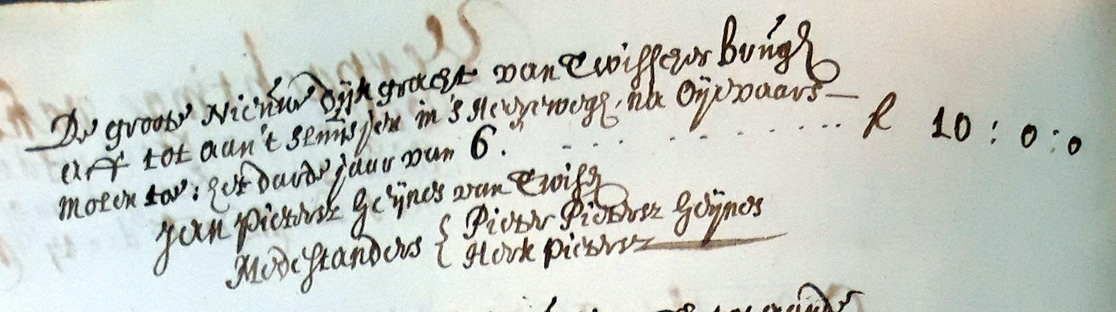 De groote Nieuw Dijkgracht van Twisscher brúgh
erff tot aan't sluijsjen in 's Heerewegh, na Oijevaars-
molen toe: het darde jaar van 6. . . . . . . . . . . . . . f 10 : 0 : 0
Jan Pietersz Geijnes van Twisk
Medestanders { Pieter Pietersz Geijnes
Herk Pietersz